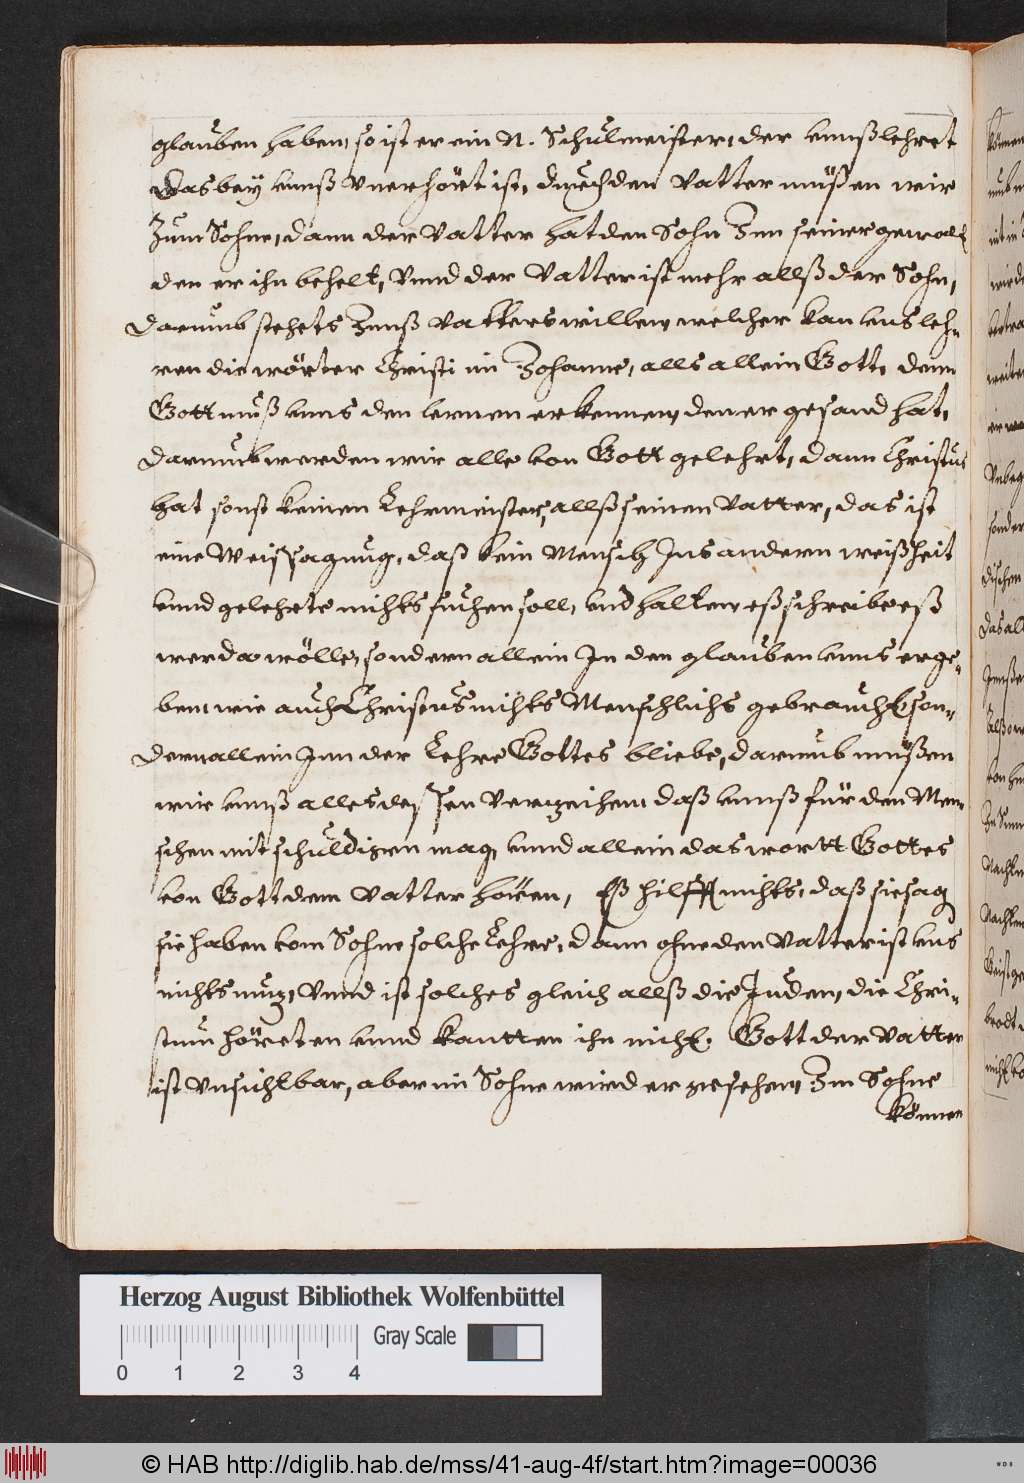 glauben haben, so ist er ein N. Schulmeister, der vnnß lehret
das bey vnnß vnerhört ist, durch den Vatter müßen wir
Zum Sohne, dann der Vatter hat den Sohn Inn seiner gewalt
den er ihn behelt, Vnnd der Vatter ist mehr allß der Sohn,
darumb stehets Innß Vatters willen, welcher kan vns leh-
ren die wörter Christi im Johanne, alls allein Gott, denn
Gott muß vnns den lernen erkennen, den er gesand hat,
darumb werden wir alle von Gott gelehrt, dann Christus
hat sonst keinen Lehrmeister, allß seinen Vatter, das ist
eine Weissagung, daß kein Mensch Ins andern weißheit
vnnd gelehrte nichts suchen soll, vnd halten, eß schreibe eß
wer da wölle, sondern allein In den glauben vnns erge-
ben, wie auch Christus nichts Menschlichs gebraucht, son-
dern allein Inn der Lehre Gottes bliebe, darumb müßen
wir vnnß alles dessen verzeihen, daß vnnß für den Men-
schen mit schuldigen mag, vnnd allein das wortt Gottes
von Gott dem Vatter hören, Eß hilfft nichts, daß sie sag
sie haben vom Sohne solche Lehre, dann ohne den Vatter ist vns
nichts nutz, Vnnd ist solches gleich allß die Juden, die Chri-
stum höreten vnnd kantten ihn nicht. Gott der Vatter
ist vnsichtbar, aber im Sohne wird er gesehen, Im Sohne
können
Herzog August Bibliothek Wolfenbüttel
Gray Scale
0 1 2 3 4
© HAB http://diglib.hab.de/mss/41-aug-4f/start.htm?image=00036